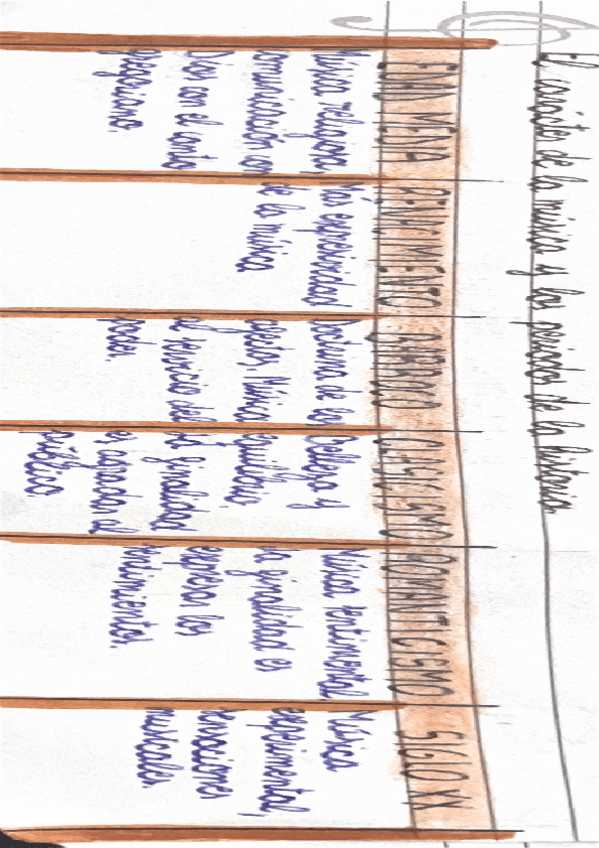 El carácter de la música y los períodos de la historia
EDAD MEDIA
Música religiosa,
comunicación con
Dios con el canto
gregoriano.
RENACIMIENTO
Más expresividad
de la música
BARROCO
Doctrina de los
afectos. Música
al servicio del
poder.
CLASICISMO
Belleza y
equilibrio
La finalidad
es agradar al
público
ROMANTICISMO
Música sentimental
La finalidad es
expresar los
sentimientos.
SIGLO XX
Música
experimental,
sensaciones
musicales.